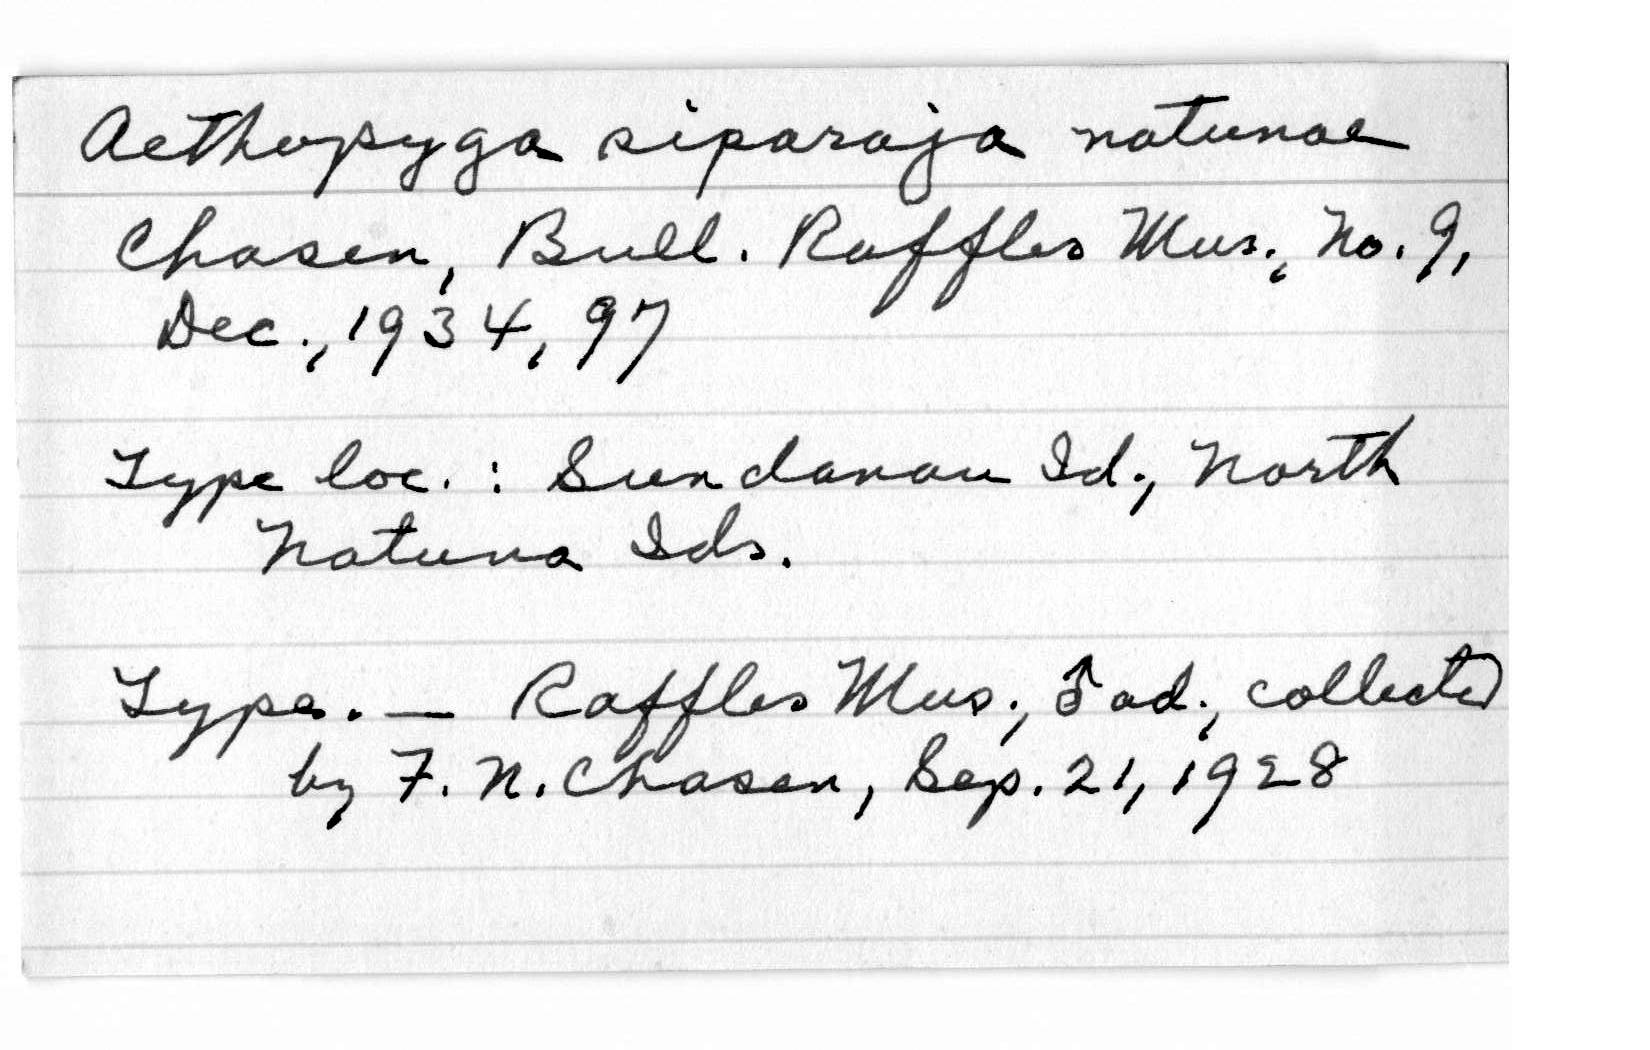 Aethopyga siparaja natunae
Chasen, Bull. Raffles Mus., No. 9,
Dec., 1934, 97
Type loc. : Sundanau Id., North
Natuna Ids.
Type. — Raffles Mus., ♂ ad., collected
by F. N. Chasen, Sep. 21, 1928